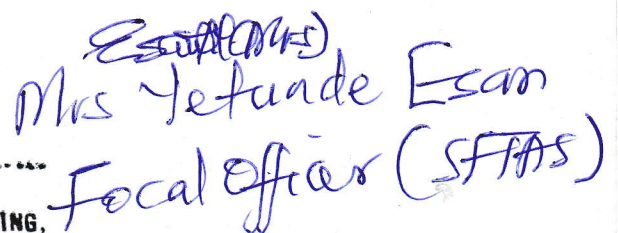 Esan (Mrs)
Mrs Yetunde Esan
Focal Officer (SFTAS)
ING,